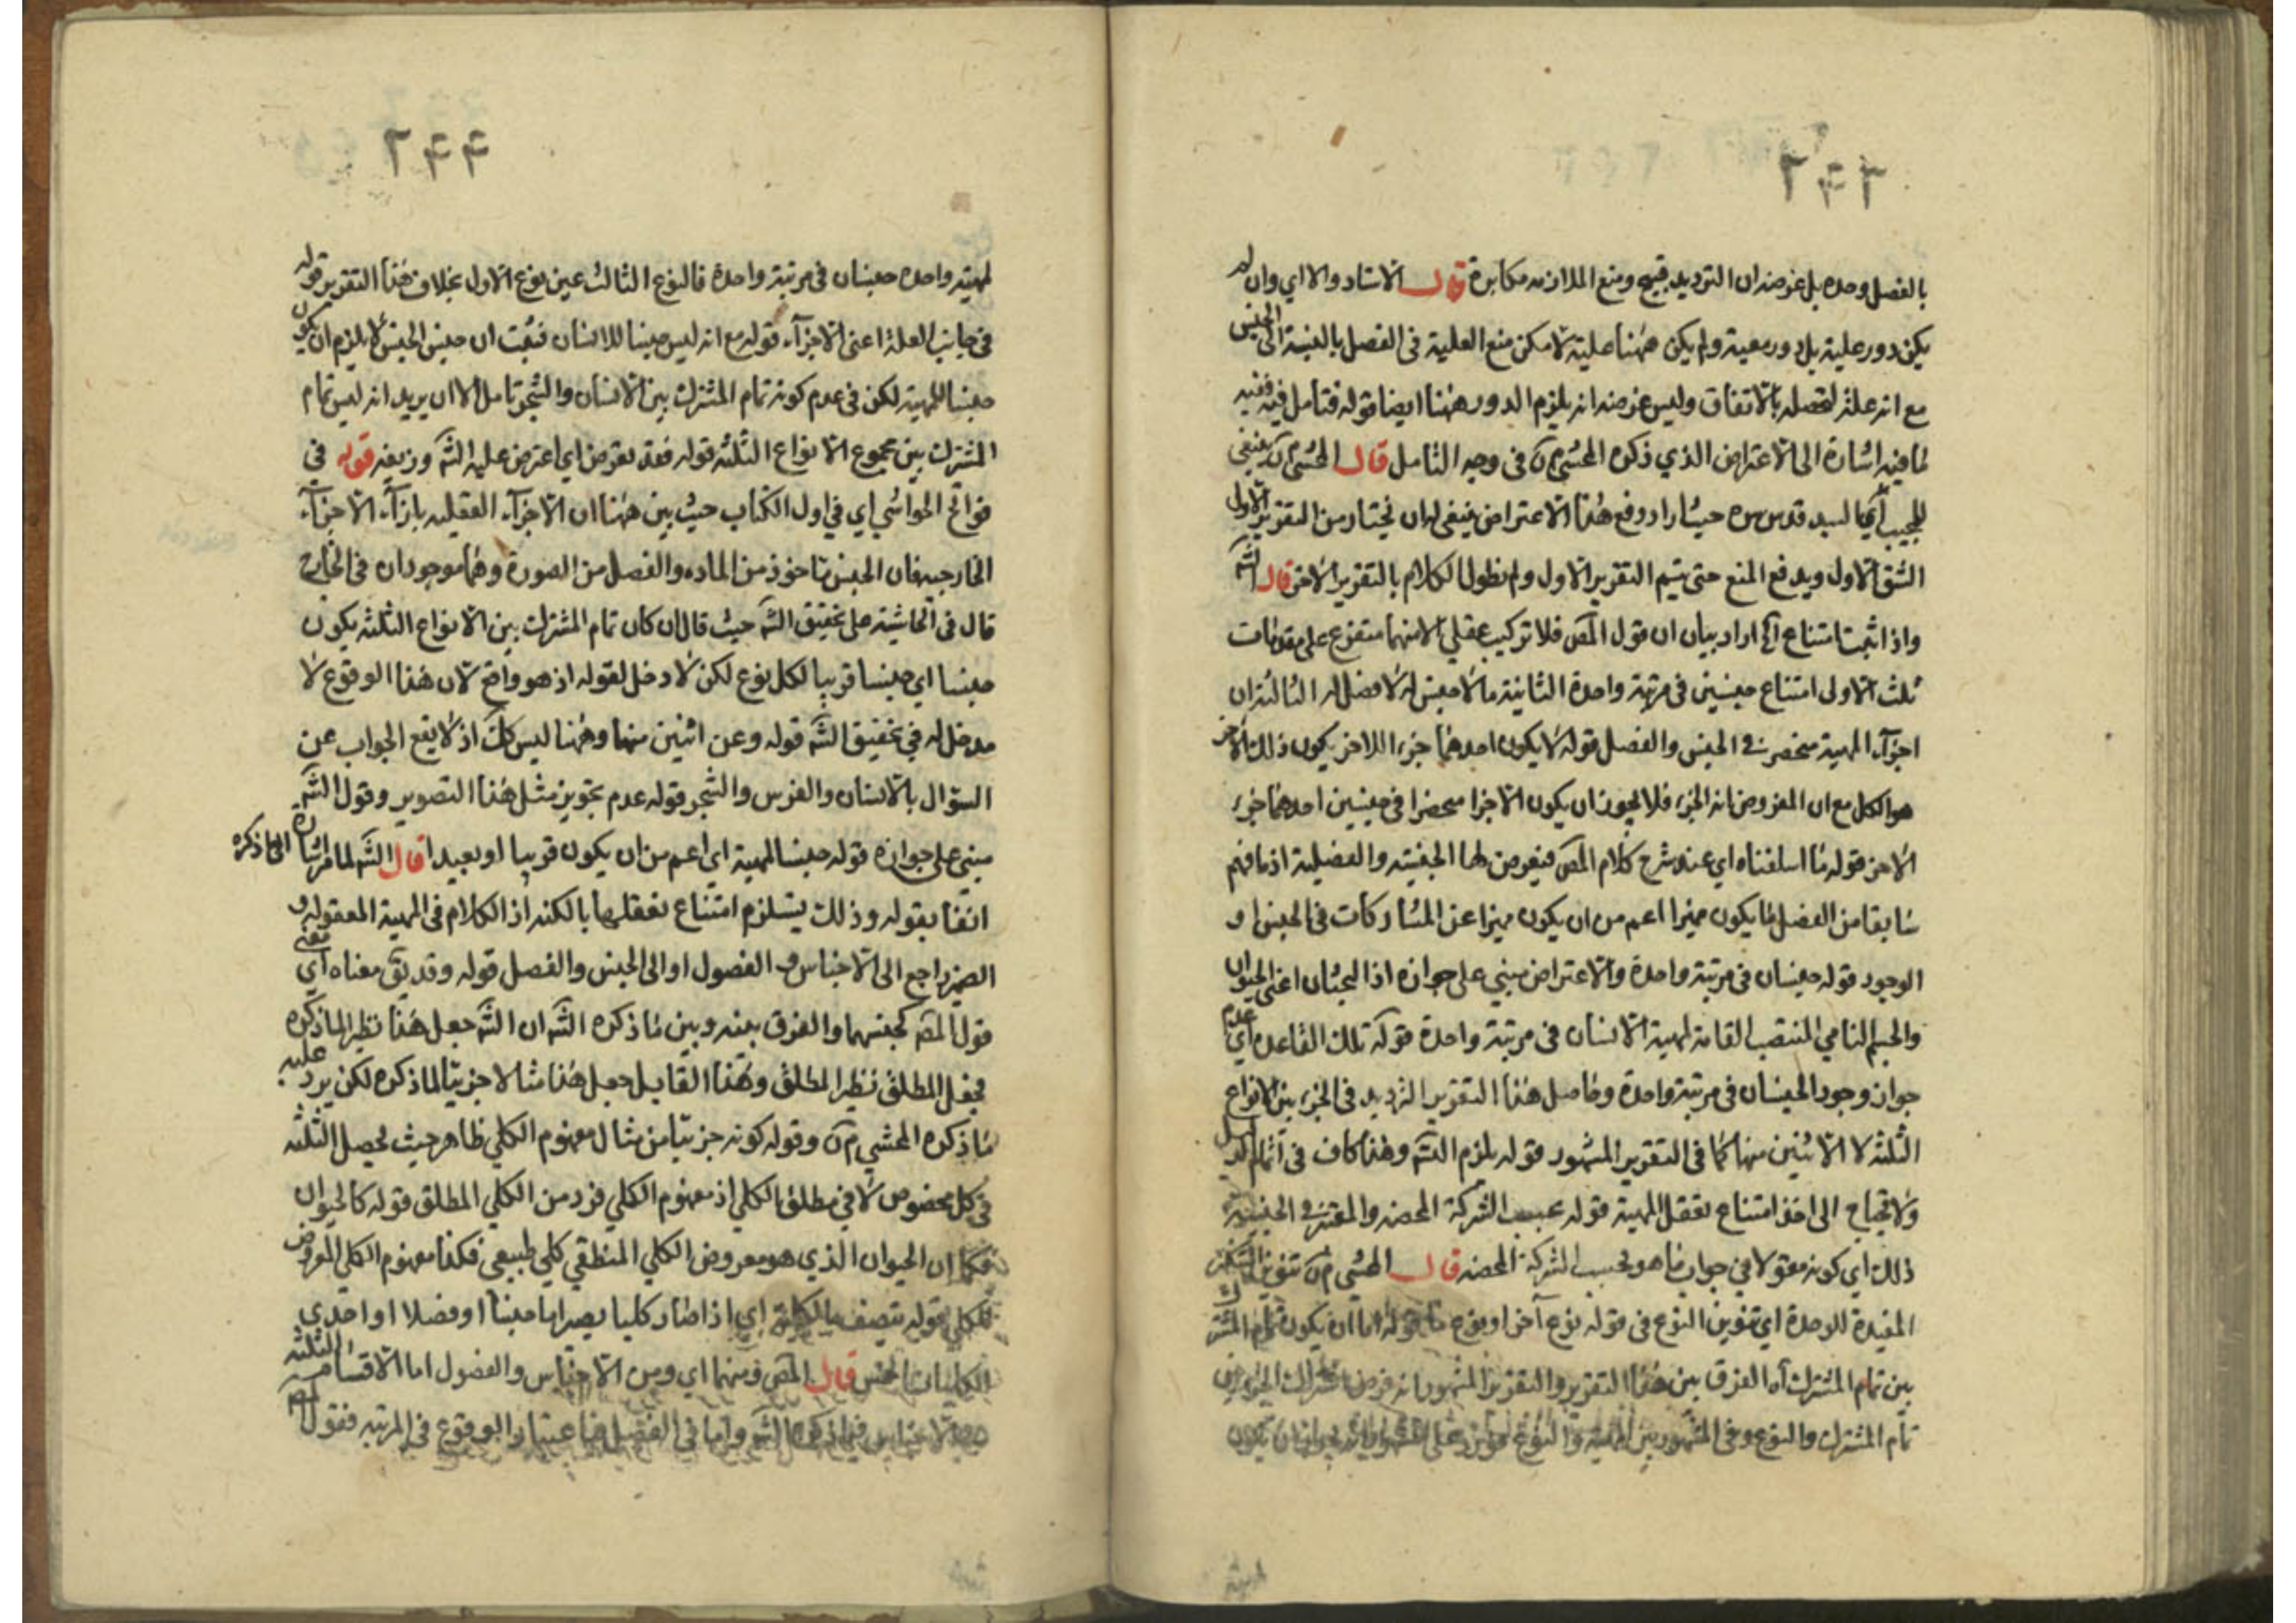 ٢٤٣
بالفصل وحده بل غرضه ان الترديد قبيح ومنع الملازمه مكابرة قال الاستاد والا اي وان لم
يكن دور علية بل دور معية ولم يكن ههنا علية لا مكن منع العلية فى الفصل بالنسبة الى الجنس
مع انه علة لتحصله بالاتفاق وليس غرضه انه يلزم الدور ههنا ايضا قوله فتأمل فيه ففيه
لما فيه اشارة الى الاعتراض الذي ذكره المحشي م ن فى وجه التامل قال المحشي م ن ينبغي
للمجيب آه اى السيد قدس سره حيث اراد دفع هذا الاعتراض ينبغى له ان يختار من التقرير الاول
الشق الاول ويدفع المنع حتى يتم التقرير الاول ولم يطول الكلام بالتقرير الاخر قال الشه
واذا ثبت امتناع آه اراد بيان ان قول المص فلا تركيب عقلي الا منهما متفرع على مقدمات
ثلث الاولى امتناع جنسين فى مرتبة واحدة الثانية ما لا جنس له لا فصل له الثالثة ان
اجزآء المهية منحصرة فى الجنس والفصل قوله لا يكون احدهما جزء اللاخر يكون ذلك الآخر
هو الكل مع ان المفروض انه الجزء فلا يجوز ان يكون الاجزا منحصرا فى جنسين احدهما جزء
الاخر قوله مما اسلفناه اي عند شرح كلام المص فيعرض لها الجنسية والفصلية اذ ما فهم
سابقا من الفصل ما يكون مميزا اعم من ان يكون مميزا عن المشاركات فى الجنس او
الوجود قوله جنسان فى مرتبة واحدة والاعتراض مبني على جوازه اذ الجنسان اعنى الحيوان
والجسم النامي المنتصب القامة لمهية الانسان فى مرتبة واحدة قوله تلك القاعدة اي عدم
جواز وجود الجنسان فى مرتبة واحدة وحاصل هذا التقرير الترديد فى الجزء بين الانواع
الثلثة لا الاثنين منها كما فى التقرير المشهور قوله يلزم الشه وهذا كاف فى اتمام الدليل
ولا تحتاج الى اخذ امتناع تعقل المهية قوله بحسب الشركة المحضه والمعتبر فى الجنسية
ذلك اي كونه مقولا في جواب ما هو بحسب الشركة المحضه قال المحشي م ن تنوين التنكير
المفيدة للوحدة اي تنوين النوع فى قوله نوع آخر او نوع ما قوله اما ان يكون تمام المشترك
بين تمام المشترك آه الفرق بين هذا التقرير والتقرير المشهور انه فرض
تمام المشترك والنوع وفى المشهور بين المهية والنوع
٢٤٤
لمهية واحده جنسان فى مرتبة واحدة فالنوع الثالث عين نوع الاول بخلاف هذا التقرير قوله
فى جانب العلة اعنى الاجزآء قوله مع انه ليس جنسا للانسان فثبت ان جنس الجنس لا يلزم ان يكون
جنسا للمهية لكن فى عدم كونه تمام المشترك بين الانسان والشجر تامل الا ان يريد انه ليس تمام
المشترك بين مجموع الانواع الثلثه قوله فقد يعرض اي اعترض عليه الشه وزيفه قوله في
فواتح الحواشي اي في اول الكتاب حيث بين ههنا ان الاجزآء العقليه بازآء الاجزآء
الخارجيه فان الجنس ماخوذ من الماده والفصل من الصورة وهما موجودان فى الخارج
قال فى الحاشيه على تحقيق الشه حيث قال ان كان تمام المشترك بين الانواع الثلثه يكون
جنسا اي جنسا قريبا لكل نوع لكن لا دخل لقوله اذ هو واقع لان هذا الوقوع لا
مدخل له في تحقيق الشه قوله وعن اثنين منها وههنا ليس كك اذ لا يقع الجواب عن
السؤال بالانسان والفرس والشجر قوله عدم تجويز مثل هذا التصوير وقول الشه
مبني على جوازه قوله جنسا للمهية اي اعم من ان يكون قريبا او بعيدا قال الشه لما مر اشارة الى ما ذكره
انفا بقوله وذلك يستلزم امتناع تعقلها بالكنه اذ الكلام فى المهية المعقوله و
الضمير راجع الى الاجناس والفصول او الى الجنس والفصل قوله وقد يق معناه اي يعنى
قول المص كجنسهما والفرق بينه وبين ما ذكره الشه ان الشه جعل هذا نظير لما ذكره
فجعل المطلق نظير المطلق وهذا القايل جعل هذا مثالا جزئيا لما ذكره لكن يرد عليه
ما ذكره المحشي م ن وقوله كونه جزئيا من مثال مفهوم الكلي ظاهر حيث يحصل الثلثه
فى كل مخصوص لا في مطلق الكلي اذ مفهوم الكلي فرد من الكلي المطلق قوله كالحيوان
فكما ان الحيوان الذي هو معروض الكلي المنطقي كلي طبيعي فكذا مفهوم الكلي المعروض
للكلي قوله تتصف بالكلية اي اذا صار كليا يصير اما جنسا او فصلا او احدى
الكليات الخمس قال المص ومنهما اي ومن الاجناس والفصول اما الاقسام الثلثه
للاجناس فما ذكره الشه واما في الفصل فباعتبار الوقوع فى المرتبه فقول المص